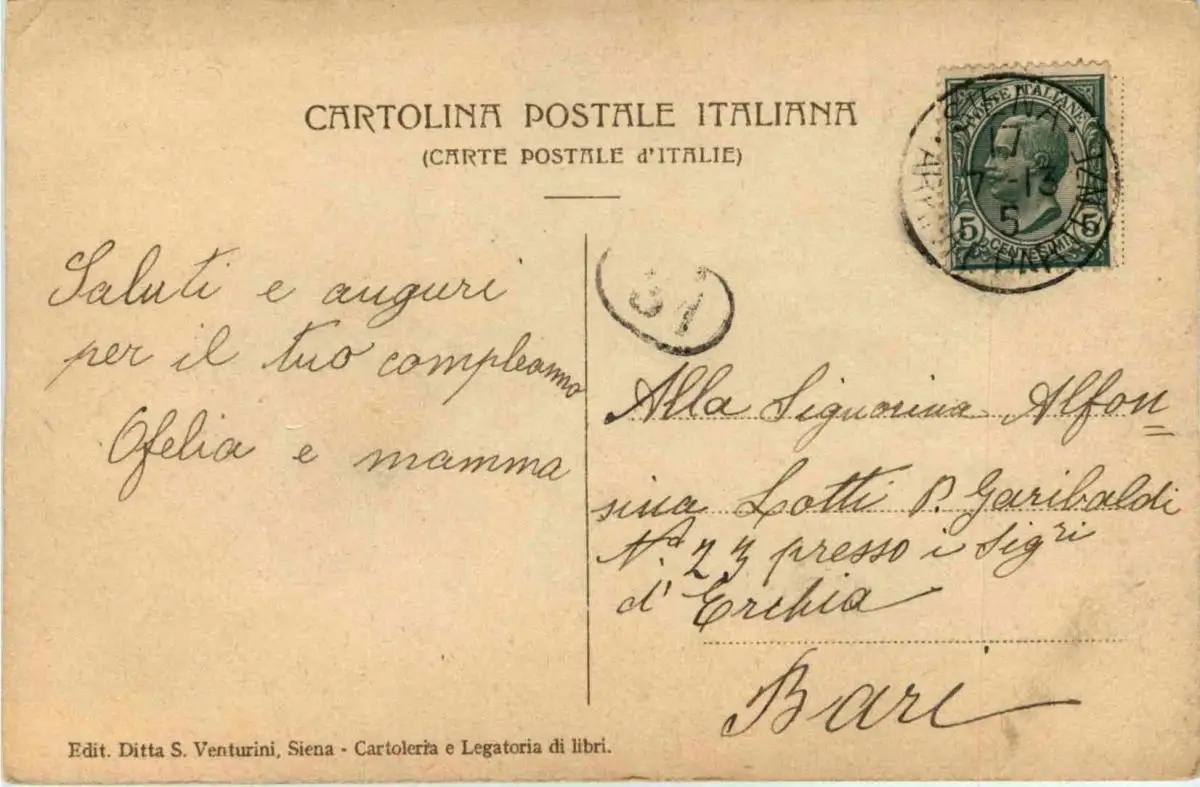 CARTOLINA POSTALE ITALIANA
(CARTE POSTALE d'ITALIE)
POSTE ITALIANE
5 5
CENTESIMI
7
7 - 13
5
31
Saluti e auguri
per il tuo compleanno
Ofelia e mamma
Alla Signorina Alfon=
sina Lotti P. Garibaldi
N.º 23 presso i Sigri
d'Erchia
Bari
Edit. Ditta S. Venturini, Siena - Cartoleria e Legatoria di libri.